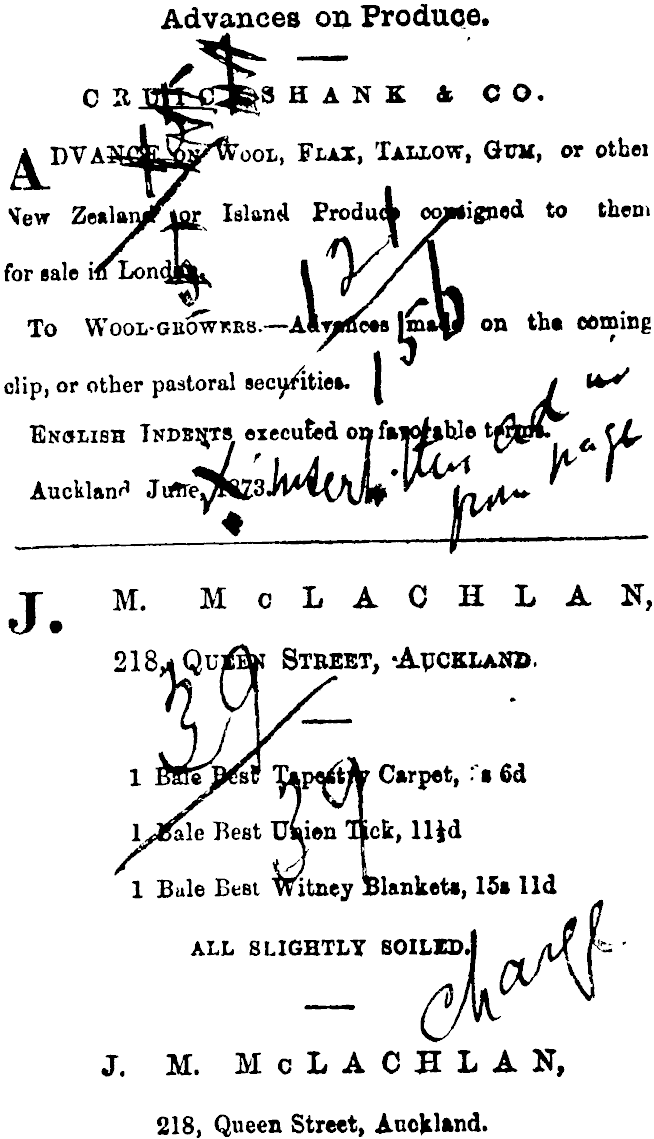 Advances on Produce.
CRUICKSHANK & CO.
ADVANCE ON WOOL, FLAX, TALLOW, GUM, or other
New Zealand or Island Produce consigned to them
for sale in London.
121
156
1
TO WOOL-GROWERS.—Advances made on the coming
clip, or other pastoral securities.
ENGLISH INDENTS executed on favorable terms.
Auckland June, 1873.
insert this ad in
page
J. M. McLACHLAN,
218, QUEEN STREET, AUCKLAND.
39
1 Bale Best Tapestry Carpet, s 6d
39
1 Bale Best Union Tick, 11½d
1 Bale Best Witney Blankets, 15s 11d
ALL SLIGHTLY SOILED.
charge
J. M. McLACHLAN,
218, Queen Street, Auckland.